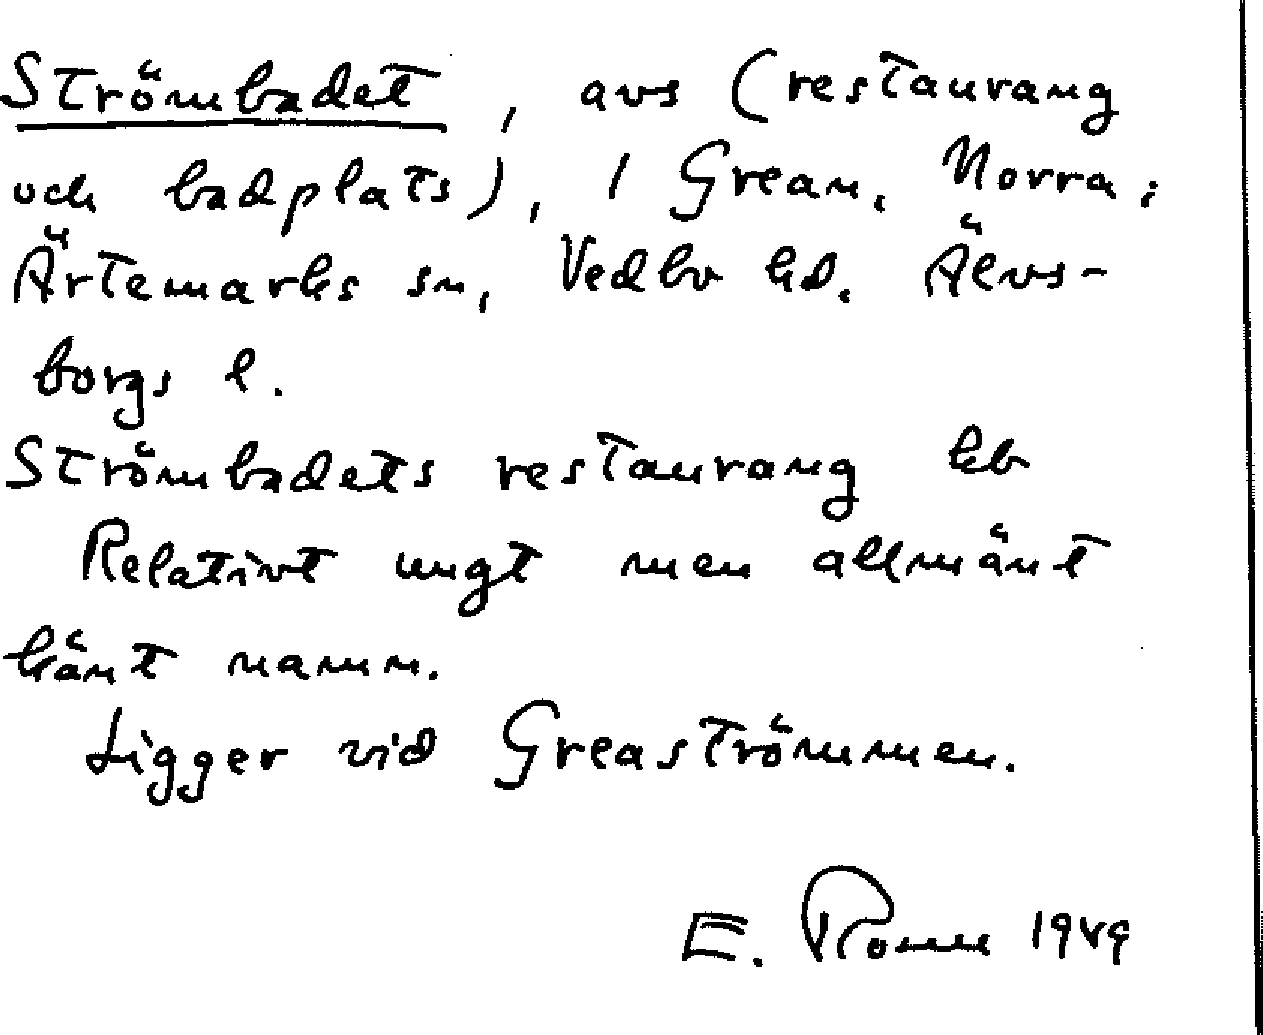 Strömbadet, avs (restaurang
och badplats), 1 Grean, Norra;
Ärtemarks sn, Vedbo hd. Älvs-
borgs l.
Strömbadets restaurang kb
Relativt ungt men allmänt
känt namn.
Ligger vid Greaströmmen.
E. 1949